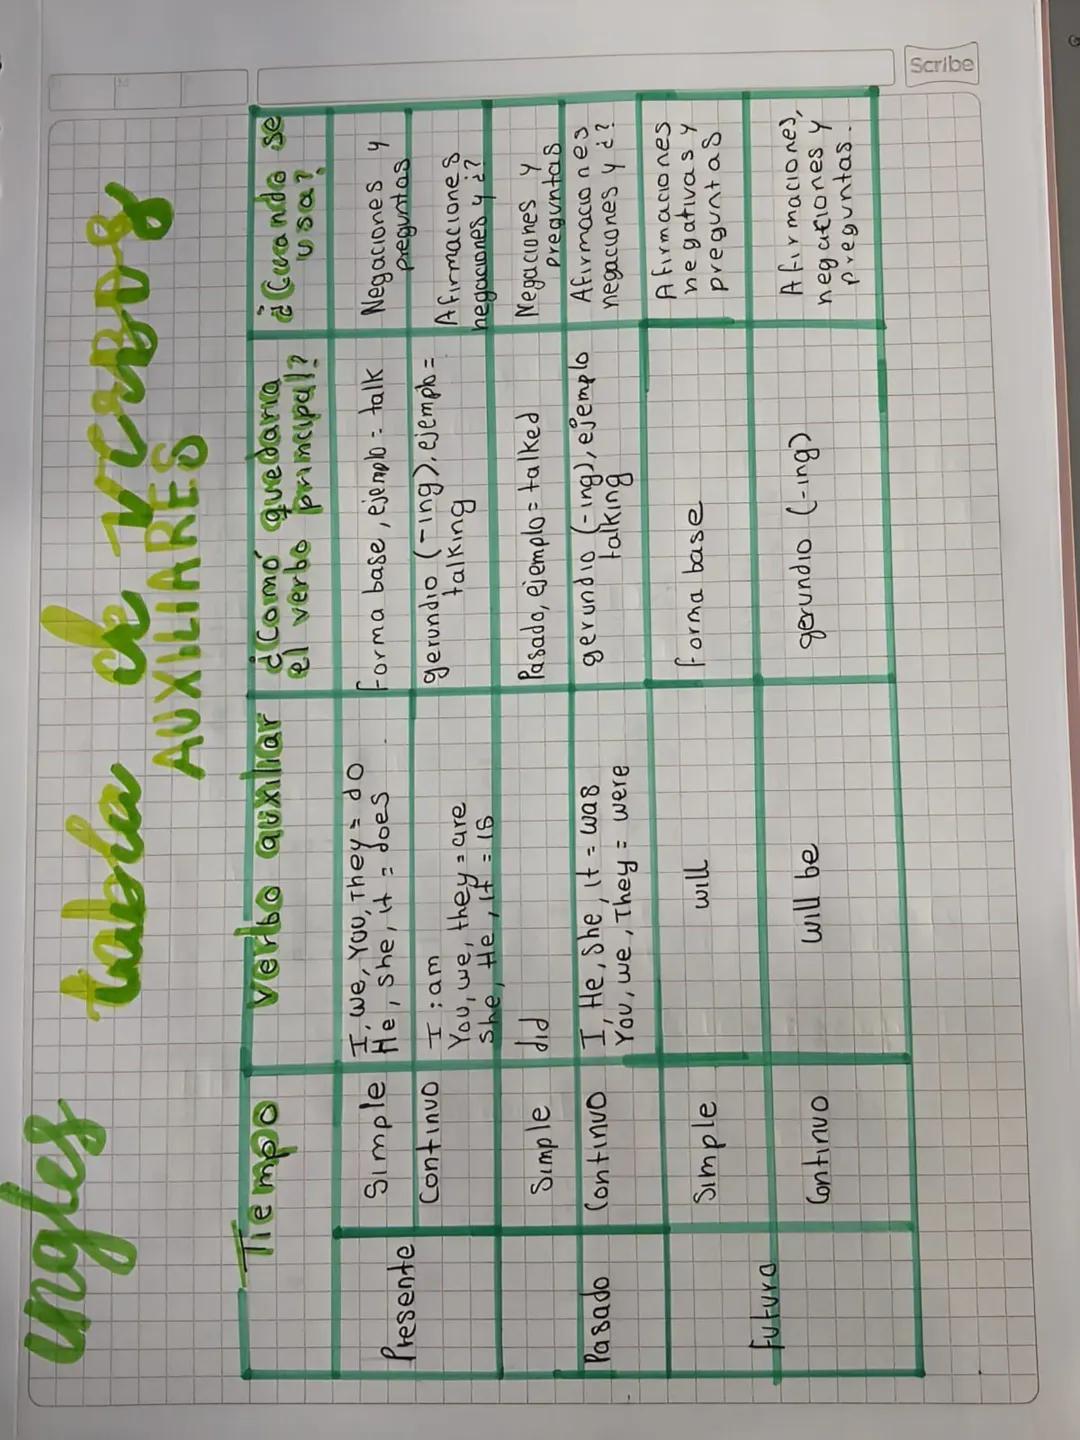 ingles
tabla de verbos
AUXILIARES
Tiempo
verbo auxiliar
¿Como quedaria
el verbo principal?
¿Cuando se
usa?
Presente
Simple
I, we, You, They = do
He, she, it = does
forma base, ejemplo = talk
Negaciones y
preguntas
Continuo
I : am
You, we, they = are
She, He, it = is
gerundio (-ing), ejemplo =
talking
Afirmaciones
negaciones y ¿?
Pasado
Simple
did
Pasado, ejemplo = talked
Negaciones y
preguntas
Continuo
I, He, She, it = was
You, we, They = were
gerundio (-ing), ejemplo
talking
Afirmaciones
negaciones y ¿?
Futuro
Simple
will
forma base
Afirmaciones
negativas y
preguntas
Continuo
will be
gerundio (-ing)
Afirmaciones,
negaciones y
preguntas.
Scribe